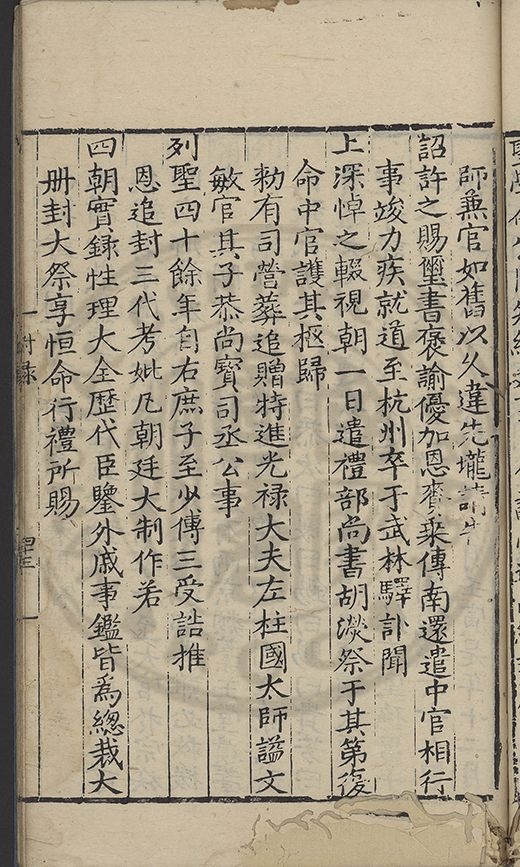 師兼官如舊以久違先壠請
詔許之賜璽書褒諭優加恩賚乘傳南還遣中官相行
事竣力疾就道至杭州卒于武林驛訃聞
上深悼之輟視朝一日遣禮部尚書胡濙祭于其第復
命中官護其柩歸
勑有司營葬追贈特進光祿大夫左柱國太師謚文
敏官其子恭尚寶司丞公事
列聖四十餘年自右庶子至少傅三受誥推
恩追封三代考妣凡朝廷大制作若
四朝實錄性理大全歷代臣鑒外戚事鑑皆爲總裁大
册封大祭享恒命行禮所賜
附錄